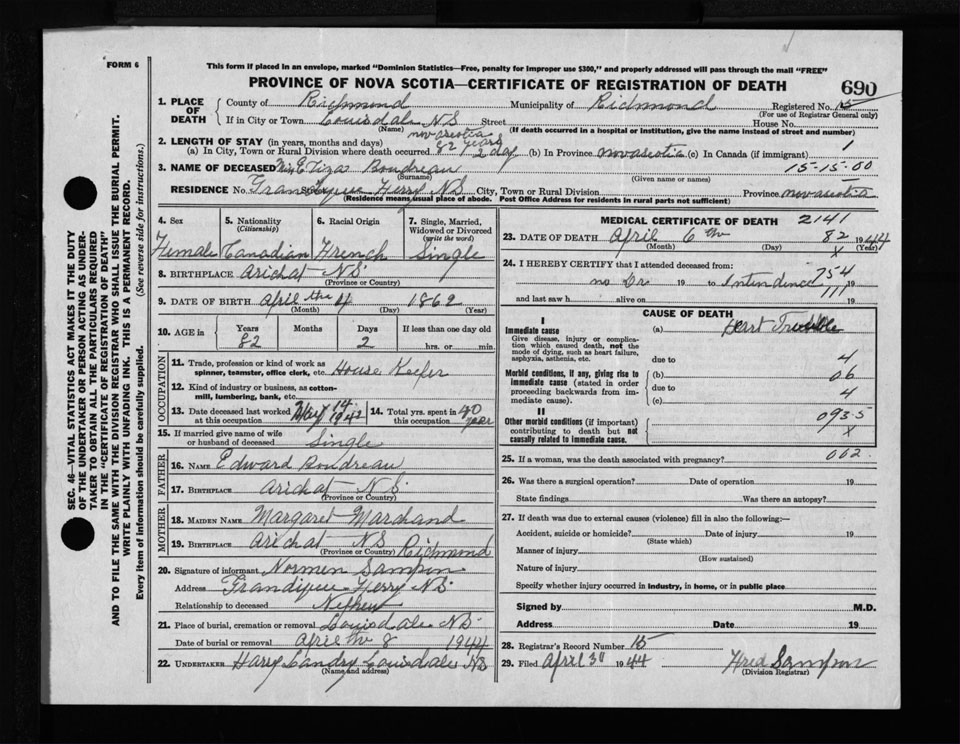 FORM 6
This form if placed in an envelope, marked "Dominion Statistics—Free, penalty for improper use $300," and properly addressed will pass through the mail "FREE"
PROVINCE OF NOVA SCOTIA—CERTIFICATE OF REGISTRATION OF DEATH
690
1. PLACE OF DEATH County of Richmond Municipality of Richmond Registered No. 15
(For use of Registrar General only)
If in City or Town Louisdale N.S. Street House No.
(Name) (If death occurred in a hospital or institution, give the name instead of street and number)
2. LENGTH OF STAY (in years, months and days) nova scotia
(a) In City, Town or Rural Division where death occurred 82 years 2 day (b) In Province nova scotia (c) In Canada (if immigrant) 1
3. NAME OF DECEASED Boudreau 15-15-00
(Surname) (Given name or names)
RESIDENCE No. Ferry NS City, Town or Rural Division Province nova scotia
(Residence means usual place of abode. Post Office Address for residents in rural parts not sufficient)
4. Sex Female
5. Nationality (Citizenship) Canadian
6. Racial Origin French
7. Single, Married, Widowed or Divorced (write the word) Single
8. BIRTHPLACE Arichat NS
(Province or Country)
9. DATE OF BIRTH April the 4 1862
(Month) (Day) (Year)
10. AGE in Years 82 Months Days 2 If less than one day hrs. or min.
OCCUPATION
11. Trade, profession or kind of work as spinner, teamster, office clerk, etc. House Keefer
12. Kind of industry or business, as cotton-mill, lumbering, bank, etc.
13. Date deceased last worked at this occupation May 14 1942
14. Total yrs. spent in this occupation 40 year
15. If married give name of wife or husband of deceased Single
FATHER
16. NAME Edward Boudreau
17. BIRTHPLACE Arichat N S
(Province or Country)
MOTHER
18. MAIDEN NAME Margaret Marchand
19. BIRTHPLACE Arichat NS Richmond
(Province or Country)
20. Signature of informant Normen Sampson
Address Ferry NS
Relationship to deceased Nephew
21. Place of burial, cremation or removal Louisdale NS
Date of burial or removal April the 8 1944
22. UNDERTAKER Harry Landry Louisdale NS
(Name and address)
MEDICAL CERTIFICATE OF DEATH 2141
23. DATE OF DEATH April 6 th 82 1944
(Month) (Day) X (Year)
24. I HEREBY CERTIFY that I attended deceased from: 754
no Dr 19 to Intendince 19
111
and last saw h alive on 19
CAUSE OF DEATH
I
Immediate cause (a) Heart Trubble
Give disease, injury or complication which caused death, not the mode of dying, such as heart failure, asphyxia, asthenia, etc.
due to 4
Morbid conditions, if any, giving rise to immediate cause (stated in order proceeding backwards from immediate cause)
(b) 06
due to 4
(c)
II
Other morbid conditions (if important) contributing to death but not causally related to immediate cause.
093.5
X
25. If a woman, was the death associated with pregnancy? 002
26. Was there a surgical operation? Date of operation 19
State findings Was there an autopsy?
27. If death was due to external causes (violence) fill in also the following:—
Accident, suicide or homicide? Date of injury 19
(State which)
Manner of injury
(How sustained)
Nature of injury
Specify whether injury occurred in industry, in home, or in public place
Signed by M.D.
Address Date 19
28. Registrar's Record Number 15
29. Filed April 30 1944 Fred Sampson
(Division Registrar)
SEC. 46—VITAL STATISTICS ACT MAKES IT THE DUTY
OF THE UNDERTAKER OR PERSON ACTING AS UNDER-
TAKER TO OBTAIN ALL THE PARTICULARS REQUIRED
IN THE "CERTIFICATE OF REGISTRATION OF DEATH"
AND TO FILE THE SAME WITH THE DIVISION REGISTRAR WHO SHALL ISSUE THE BURIAL PERMIT.
WRITE PLAINLY WITH UNFADING INK. THIS IS A PERMANENT RECORD.
Every item of information should be carefully supplied. (See reverse side for instructions.)